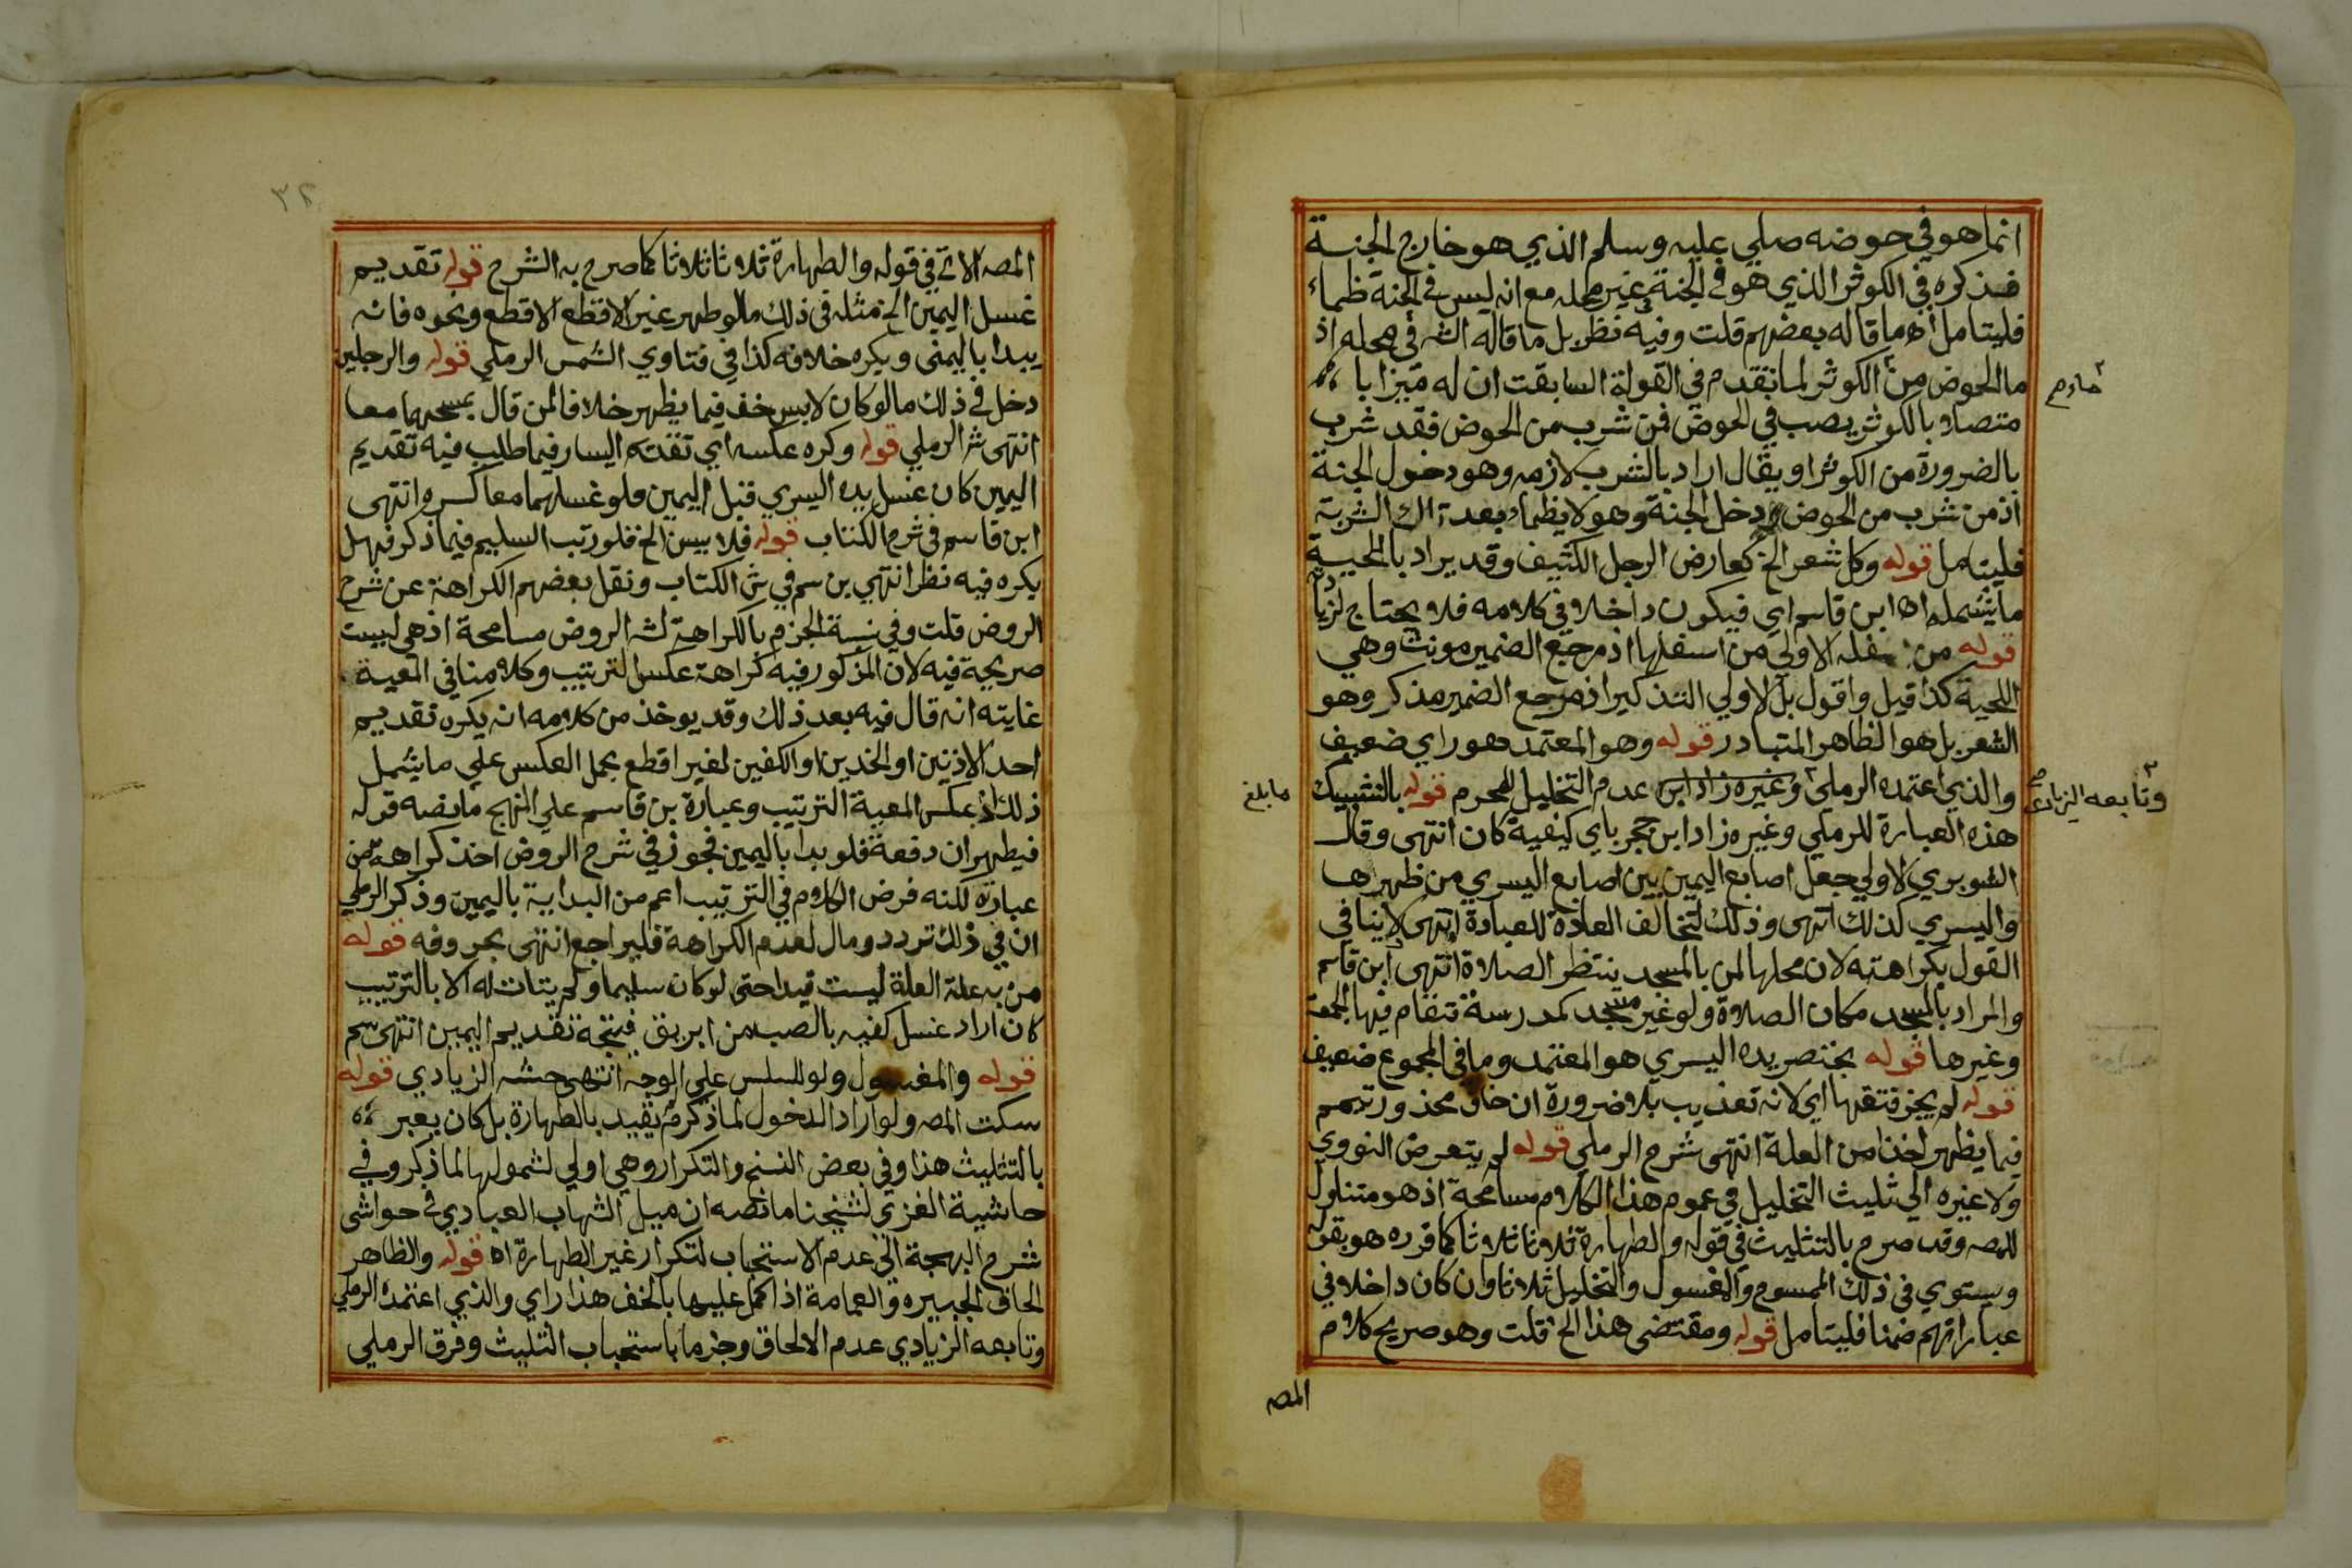 انما هو في حوضه صلي عليه وسلم الذي هو خارج الجنة
فذكره في الكوثر الذي هو في الجنة غير محله مع انه ليس في الجنة ظماء
فليتامل اه ما قاله بعضهم قلت وفيه نظر بل ما قاله الش في محله اذ
ما الحوض من الكوثر لما تقدم في القولة السابقت ان له ميزابا
متصلا بالكوثر يصب في الحوض فمن شرب من الحوض فقد شرب
بالضرورة من الكوثر او يقال اراد بالشرب لازمه وهو دخول الجنة
اذ من شرب من الحوض دخل الجنة وهو لا يظماء بعد تلك الشربة
فليتامل قوله وكل شعر الخ كعارض الرجل الكثيف وقد يراد بالحيية
ما يشمله اه ابن قاسم اي فيكون داخلا في كلامه فلا يحتاج لزيادة
قوله من سفله الاولي من اسفلها اذ مرجع الضمير مونث وهي
اللحية كذا قيل واقول بل الاولي التذكير اذ مرجع الضمير مذكر وهو
الشعر بل هو الظاهر المتبادر قوله وهو المعتمد هو راي ضعيف
والذي اعتمده الرملي وغيره زاد ابن عدم التخليل للمحرم قوله بالتشبيك
وتابعه الزيادي
هذه العبارة للرملي وغيره زاد ابن حجر باي كيفية كان انتهى وقال
الشوبري الاولي جعل اصابع اليمين بين اصابع اليسري من ظهرها
واليسري كذلك انتهى وذلك لتخالف العادة للعبادة انتهى لا ينافي
القول بكراهته لان محلها لمن بالمسجد ينتظر الصلاة انتهى ابن قاسم
والمراد بالمسجد مكان الصلاة ولو غير مسجد كمدرسة تتقام فيها الجمعة
وغيرها قوله بخنصر يده اليسري هو المعتمد وما في المجموع ضعيف
قوله لم يجز فتقها اي لانه تعذيب بلا ضرورة ان خاف محذور تيمم
فيما يظهر اخذا من العلة انتهى شرح الرملي قوله لم يتعرض النووي
ولا غيره الي تثليث التخليل في عموم هذا الكلام مسامحة اذ هو متناول
للمصه وقد صرح بالتثليث في قوله والطهارة ثلاثا ثلاثا كما قرره هو بقوله
ويستوي في ذلك الممسوح والمغسول والتخليل ثلاثا وان كان داخلا في
عباراتهم ضمنا فليتامل قوله ومقتضى هذا الخ قلت وهو صريح كلام
المصه
المصه الاتي في قوله والطهارة ثلاثا ثلاثا كما صرح به الشرح قوله تقديم
غسل اليمين الخ مثله في ذلك ما لو طهر غير الاقطع الاقطع ونحوه فانه
يبدا باليمنى ويكره خلافه كذا في فتاوي الشمس الرملي قوله والرجلين
دخل في ذلك ما لو كان لابس خف فيما يظهر خلافا لمن قال بمسحهما معا
انتهى ش الرملي قوله وكره عكسه اي تقديم اليسار فيما طلب فيه تقديم
اليمين كان غسل يده اليسري قبل اليمين فلو غسلهما معا كره انتهى
ابن قاسم في شرح الكتاب قوله فلا يسن الخ فلو رتب السليم فيما ذكر فهل
يكره فيه نظر انتهي بن سم في ش الكتاب ونقل بعضهم الكراهة عن شرح
الروض قلت وفي نسبة الجزم بالكراهة لش الروض مسامحة اذ هي ليست
صريحة فيه لان المذكور فيه كراهة عكس الترتيب وكلامنا في المعية
غايته انه قال فيه بعد ذلك وقد يوخذ من كلامه انه يكره تقديم
احد الاذنين او الخدين او الكفين لغير اقطع بحمل العكس علي ما يشمل
ذلك اذ عكس المعية الترتيب وعبارة بن قاسم علي المنهج ما نصه قوله
فيطهران دفعة فلو بدا باليمين فجوز في شرح الروض اخذ كراهة من
عبارة لكنه فرض الكلام في الترتيب اعم من البداية باليمين وذكر الرملي
ان في ذلك تردد ومال لعدم الكراهة فليراجع انتهى بحروفه قوله
من به علة العلة ليست قيدا حتى لو كان سليما ولم يتات له الا بالترتيب
كان اراد غسل كفيه بالصب من ابريق فيتجه تقديم اليمين انتهى سم
قوله والمغسول ولو للسلس علي الوجه انتهى حشه الزيادي قوله
سكت المصه ولو اراد الدخول لما ذكر لم يقيد بالطهارة بل كان يعبر
بالتثليث هذا وفي بعض النسخ والتكرار وهي اولي لشمولها لما ذكر وفي
حاشية الغزي لشيخنا ما نصه ان ميل الشهاب العبادي في حواشى
شرح البهجة الي عدم الاستحباب لتكرار غير الطهارة اه قوله والظاهر
الحاق الجبيره والعمامة اذا كمل عليها بالخف هذا راي والذي اعتمده الرملي
وتابعه الزيادي عدم الالحاق وجزما باستحباب التثليث وفرق الرملي